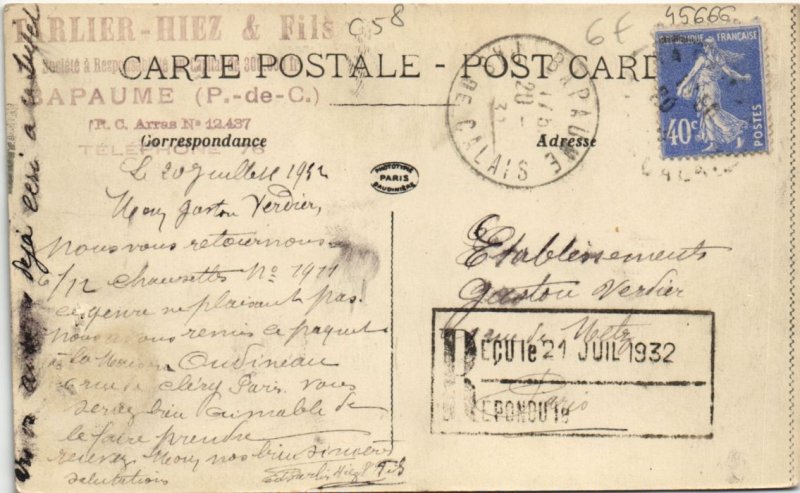 TARLIER-HIEZ & Fils
Société à Responsabilité
BAPAUME (P.-de-C.)
R. C. Arras N° 12.437
TÉLÉPHONE 76
C58
6F
45666
CARTE POSTALE - POST CARD
Correspondance
Adresse
PHOTOTYPIE
PARIS
BAUDINIÈRE
BAPAUME
PAS DE CALAIS
17 45
20 -
RÉPUBLIQUE FRANÇAISE
40c
POSTES
Le 20 Juillet 1932
Mons Gaston Verdier,
Nous vous retournons
6/12 chaussettes No 1911
ce genre ne plaisant pas.
nous avons remis ce paquet
à la Maison Oudineau
6 rue de Cléry Paris. Vous
seriez bien aimable de
le faire prendre
recevez Mons nos bien sincères
salutations
Tarlier Hiez & Fils
Etablissements
Gaston Verdier
rue de Metz
Paris
REÇU le 21 JUIL 1932
REPONDU le
déjà